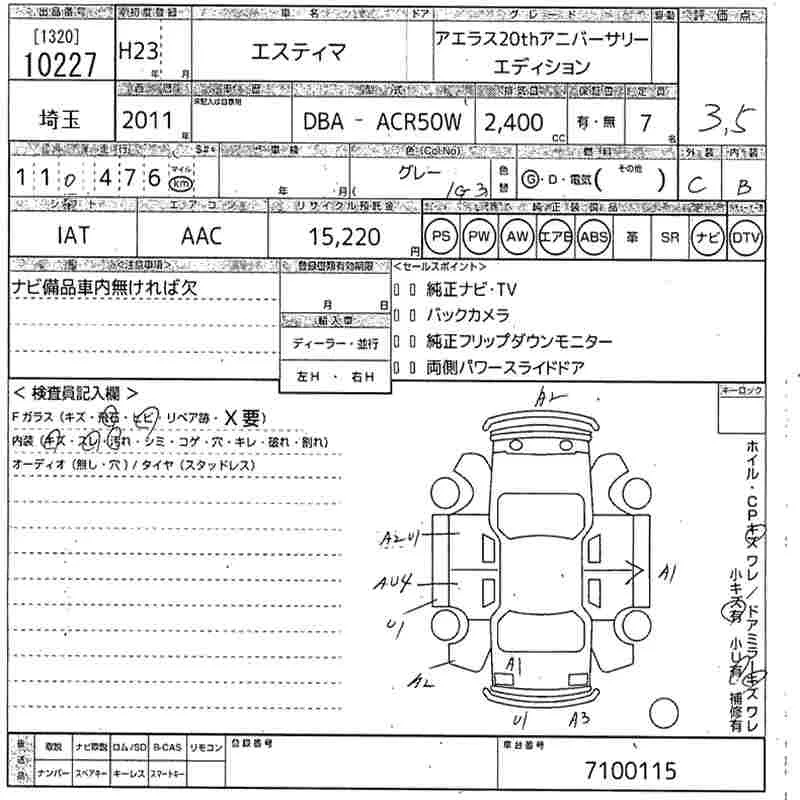 出品番号 初度登録 車名 ドア グレード 駆動 評価点
[1320]
10227 H23 年 月 エスティマ アエラス20thアニバーサリー
エディション
3,5
車歴 型式 排気量 定員
未記入は自家用
埼玉 2011 年 DBA - ACR50W 2,400 CC 有・無 7 名
走行 車検 色(Col.No) 燃料 外装 内装
110,476 マイル km 年 月 グレー ( 1G3 色替 G・D・電気( その他 ) C B
シフト エアコン リサイクル預託金 純正装備品
IAT AAC 15,220 円 PS PW AW エアB ABS 革 SR ナビ DTV
<注意事項> 登録書類有効期限 <セールスポイント>
ナビ備品車内無ければ欠
月 日
純正ナビ・TV
バックカメラ
純正フリップダウンモニター
両側パワースライドドア
輸入車
ディーラー・並行
左H ・ 右H
< 検査員記入欄 >
Fガラス(キズ・飛石・ヒビ・リペア跡・X要)
内装(キズ・スレ・汚れ・シミ・コゲ・穴・キレ・破れ・割れ)
オーディオ(無し・穴)/タイヤ(スタッドレス)
キーロック
A2
A2 U1
AU4
U1
A2
A1
A1
U1 A3
ホイル・CPキズ ワレ/ドアミラーキズ ワレ
小キズ有 小U有 補修有
後送品 取説 ナビ取説 ロム/SD B-CAS リモコン
ナンバー スペアキー キーレス スマートキー
登録番号
車台番号
7100115